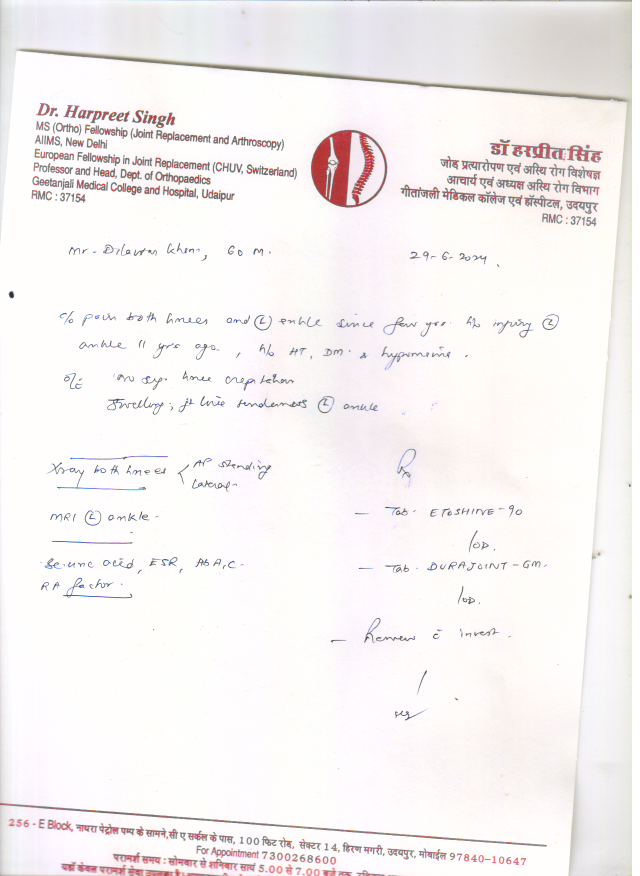 Dr. Harpreet Singh
MS (Ortho) Fellowship (Joint Replacement and Arthroscopy)
AIIMS, New Delhi
European Fellowship in Joint Replacement (CHUV, Switzerland)
Professor and Head, Dept. of Orthopaedics
Geetanjali Medical College and Hospital, Udaipur
RMC : 37154
डॉ हरप्रीत सिंह
जोड़ प्रत्यारोपण एवं अस्थि रोग विशेषज्ञ
आचार्य एवं अध्यक्ष अस्थि रोग विभाग
गीतांजली मेडिकल कॉलेज एवं हॉस्पीटल, उदयपुर
RMC : 37154
Mr - Khan, 60 M.
29-6-2024.
c/o pain both knees and (L) ankle since few yrs. h/o injury (L)
ankle 11 yrs ago., h/o HT, DM &
O/E knee crepitation
Swelling, jt line tenderness (L) ankle
Xray both knees < AP standing
Lateral-
MRI (L) ankle -
Se. uric acid, ESR, HbA1C -
RA factor.
Rx
- Tab. ETOSHINE-90
1 OD.
- Tab. DURAJOINT-GM.
1 OD.
- Review c̄ invest.
256 - E Block, नायरा पेट्रोल पम्प के सामने,सी ए सर्कल के पास, 100 फिट रोड, सेक्टर 14, हिरण मगरी, उदयपुर, मोबाईल 97840-10647
For Appointment 7300268600
परामर्श समय : सोमवार से शनिवार सायं 5.00 से 7.00 बजे तक
यहाँ केवल परामर्श सेवा